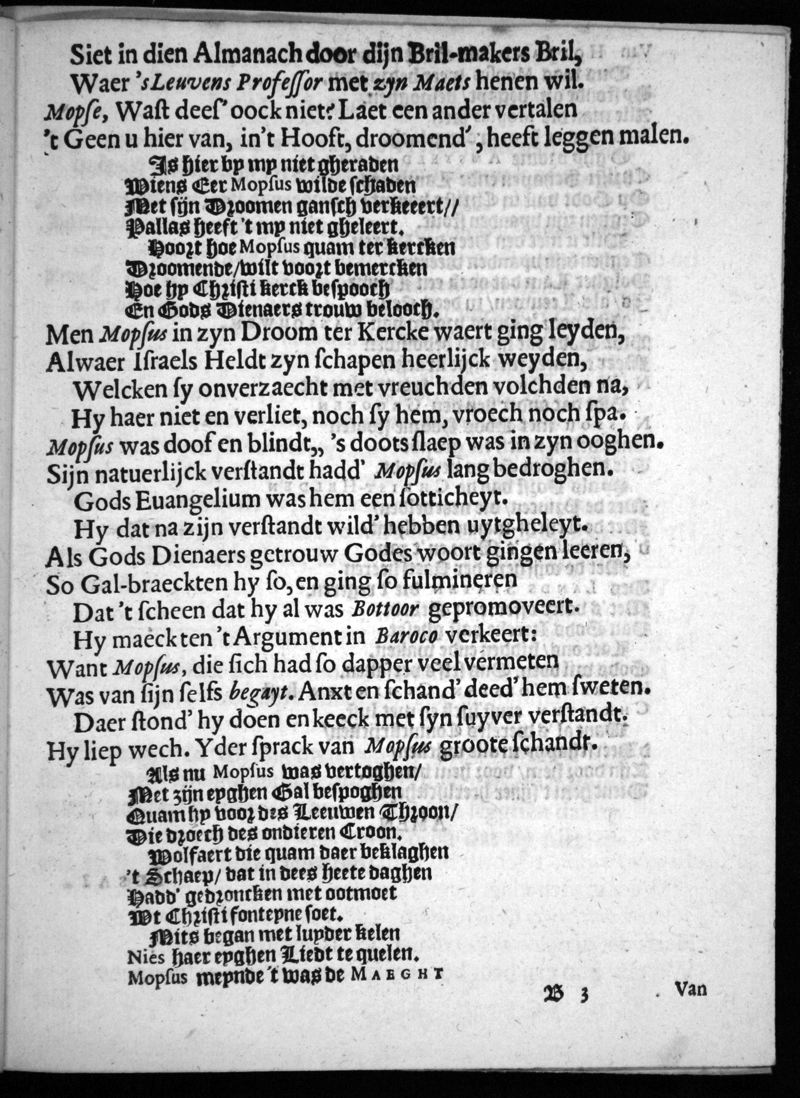 Siet in dien Almanach door dijn Bril-makers Bril,
Waer 'sLeuvens Profeſſor met zyn Maets henen wil.
Mopſe, Waſt deeſ' oock niet? Laet een ander vertalen
't Geen u hier van, in't Hooft, droomend', heeft leggen malen.
Is hier by my niet gheraden
Wiens Eer Mopſus wilde ſchaden
Met ſijn Droomen ganſch verkeeert//
Pallas heeft 't my niet gheleert.
Hoort hoe Mopſus quam ter kercken
Droomende/wilt voort bemercken
Hoe hy Chriſti kerck beſpooch
En Gods Dienaers trouw belooch.
Men Mopſus in zyn Droom ter Kercke waert ging leyden,
Alwaer Iſraels Heldt zyn ſchapen heerlijck weyden,
Welcken ſy onverzaecht met vreuchden volchden na,
Hy haer niet en verliet, noch ſy hem, vroech noch ſpa.
Mopſus was doof en blindt,, 's doots ſlaep was in zyn ooghen.
Sijn natuerlijck verſtandt hadd' Mopſus lang bedroghen.
Gods Euangelium was hem een ſotticheyt.
Hy dat na zijn verſtandt wild' hebben uytgheleyt.
Als Gods Dienaers getrouw Godes woort gingen leeren,
So Gal-braeckten hy ſo, en ging ſo fulmineren
Dat 't ſcheen dat hy al was Bottoor gepromoveert.
Hy maeckten 't Argument in Baroco verkeert:
Want Mopſus, die ſich had ſo dapper veel vermeten
Was van ſijn ſelfs begayt. Anxt en ſchand' deed' hem ſweten.
Daer ſtond' hy doen en keeck met ſyn ſuyver verſtandt.
Hy liep wech. Yder ſprack van Mopſus groote ſchandt.
Als nu Mopſus was vertoghen/
Met zijn eyghen Gal beſpoghen
Quam hy voor des Leeuwen Throon/
Die droech des ondieren Croon.
Wolfaert die quam daer beklaghen
't Schaep/ dat in dees heete daghen
Hadd' gedroncken met ootmoet
Wt Chriſti fonteyne ſoet.
Mits began met luyder kelen
Nies haer eyghen Liedt te quelen.
Mopſus meynde 't was de MAEGHT
B 3
Van